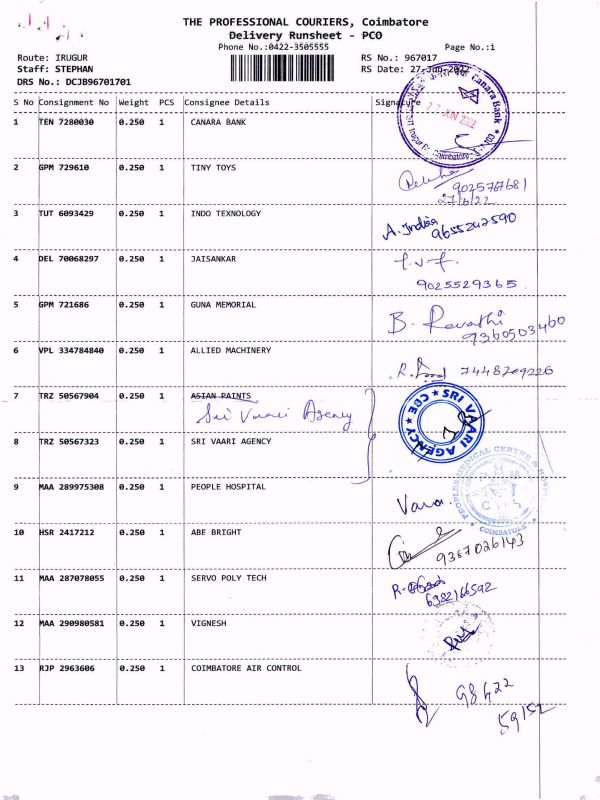 THE PROFESSIONAL COURIERS, Coimbatore
Delivery Runsheet - PCO
Phone No.:0422-3505555
Page No.:1
Route: IRUGUR
RS No.: 967017
Staff: STEPHAN
RS Date: 27-Jun-2022
DRS No.: DCJB96701701
S No Consignment No Weight PCS Consignee Details Signature
1 TEN 7280030 0.250 1 CANARA BANK
Canara Bank
27 JUN 2022
Coimbatore
2 GPM 729610 0.250 1 TINY TOYS
9025767681
27/6/22
3 TUT 6093429 0.250 1 INDO TEXNOLOGY
A. India
9655242590
4 DEL 70068297 0.250 1 JAISANKAR
9025529365
5 GPM 721686 0.250 1 GUNA MEMORIAL
B. Revathi
9360503460
6 VPL 334784840 0.250 1 ALLIED MACHINERY
7448209226
7 TRZ 50567904 0.250 1 ASIAN PAINTS
Sri Vaari Agency
SRI VAARI AGENCY ★ CBE ★
8 TRZ 50567323 0.250 1 SRI VAARI AGENCY
9 MAA 289975308 0.250 1 PEOPLE HOSPITAL
PEOPLES MEDICAL CENTRE &
COIMBATORE
10 HSR 2417212 0.250 1 ABE BRIGHT
9367026143
11 MAA 287078055 0.250 1 SERVO POLY TECH
6382166592
12 MAA 290980581 0.250 1 VIGNESH
13 RJP 2963606 0.250 1 COIMBATORE AIR CONTROL
98422
59152